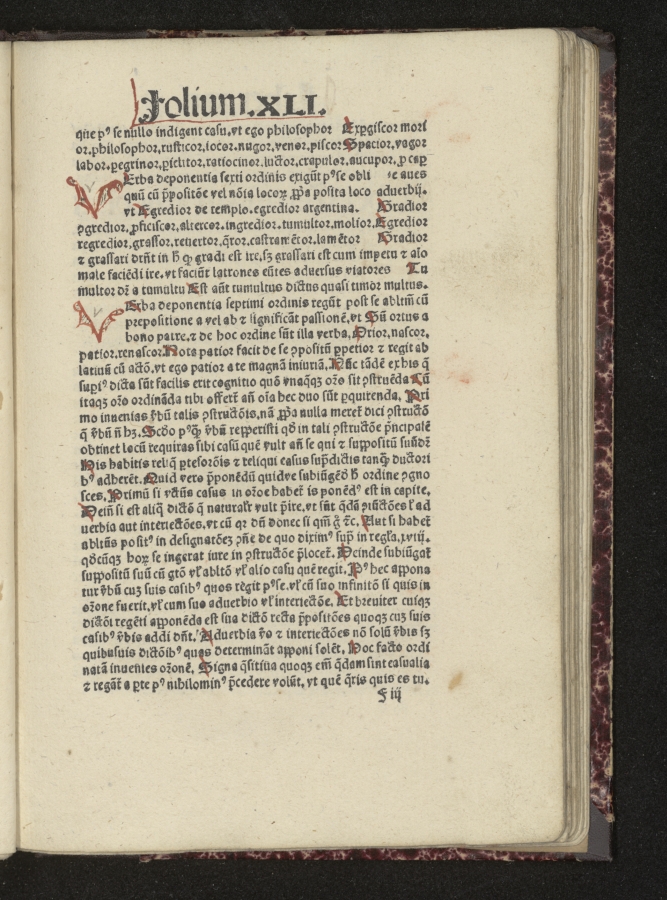 Folium.XLI.
que pꝰ se nullo indigent casu, vt ego philosophor Expgiscor mori
or.philosophor,rusticor,iocor.nugor,venor,piscor Spacior,vagor
labor.pegrinor,piclitor,ratiocinor,luctor,crapulor,aucupor,p cap
VErba deponentia sexti ordinis exigūt pꝰse obli e aues
quū cū p̄positōe vel nōia locoꝝ ꝓpa posita loco aduerbij.
vt Egredior de templo.egredior argentina. Gradior
ꝯgredior,ꝓficiscor,altercor,ingredior,tumultor,molior,Egredior
regredior,grassor,reuertor,q̄ror,castramētor,lamētor Gradior
⁊ grassari drn̄t in h̄ ꝙ gradi est ire,sꝫ grassari est cum impetu ⁊ aīo
male faciēdi ire,vt faciūt latrones eūtes aduersus viatores Tu
multor dꝛ̄ a tumultu Est aūt tumultus dictus quasi timor multus.
VErba deponentia septimi ordinis regūt post se ablīm cū
prepositione a vel ab ⁊ significāt passionē,vt Sū ortus a
bono patre,⁊ de hoc ordine sūt illa verba,Orior,nascor,
patior,renascor.Nota patior facit de se ꝯpositū ꝑpetior ⁊ regit ab
latiuū cū actō,vt ego patior a te magnā iniuriā,Nūc tādē ex his q̄
supꝰ dicta sūt facilis erit cognitio quō vnaq̄qꝫ or̄o sit ꝯstruēda Cū
itaqꝫ or̄o ordināda tibi offert̄ an̄ oīa hec duo sūt ꝑquirenda, Pri
mo inuenias ꝟbū talis ꝯstructōis,nā ꝓpa nulla meret̄ dici ꝯstructō
q̄ ꝟbū n̄ hꝫ,Scdo pꝰꝙ ꝟbū repperisti qđ in tali ꝯstructōe p̄ncipalē
obtinet locū requiras sibi casū quē vult an̄ se qui ⁊ suppositū suūdꝛ
His habitis reliq̄ ptesorōis ⁊ reliqui casus sup̄dictis tanꝙ ductori
bꝰ adherēt.Quid vero p̄ponēdū quidve subiūgēdū h̄ ordine ꝯgno
sces,Primū si vctūs casus in or̄oe habet̄ is ponēdꝰ est in capite,
Dein̄ si est aliq̄ dictō q̄ naturalr̄ vult p̄ire,vt sūt q̄dā ꝯiūctōes ł ad
uerbia aut interiectōes,vt cū qꝛ dn̄ donec si qm̄ ḡ ⁊c. Aut si habet̄
ablūs positꝰ in designatōeꝫ ꝯn̄e de quo diximꝰ sup̄ in regła.xviij.
qđcūqꝫ hoꝝ se ingerat iure in ꝯstructōe p̄locet̄.Deinde subiūgat̄
suppositū suū cū gtō vł abłtō vł alio casu quē regit.Pꝰ hec appona
tur ꝟbū cuꝫ suis casibꝰ quos rēgit pꝰse.vł cū suo infinitō si quis in
or̄one fuerit,vł cum suo aduerbio vł interiectōe. Et breuiter cuiqꝫ
dictōi regēti appōneda est sua dictō recta p̄positōes quoqꝫ cuꝫ suis
casibꝰ ꝟbis addi dn̄t. Aduerbia ꝟo ⁊ interiectōes nō solū ꝟbis sꝫ
quibusuis dictōibꝰ quas determināt apponi solēt. Hoc facto ordi
natā inuenies or̄onē. Signa q̄sitiua quoqꝫ em̄ q̄dam sint casualia
⁊ regāt̄ a pte pꝰ nihilominꝰ p̄cedere volūt, vt quē q̄ris quis es tu.
F iij